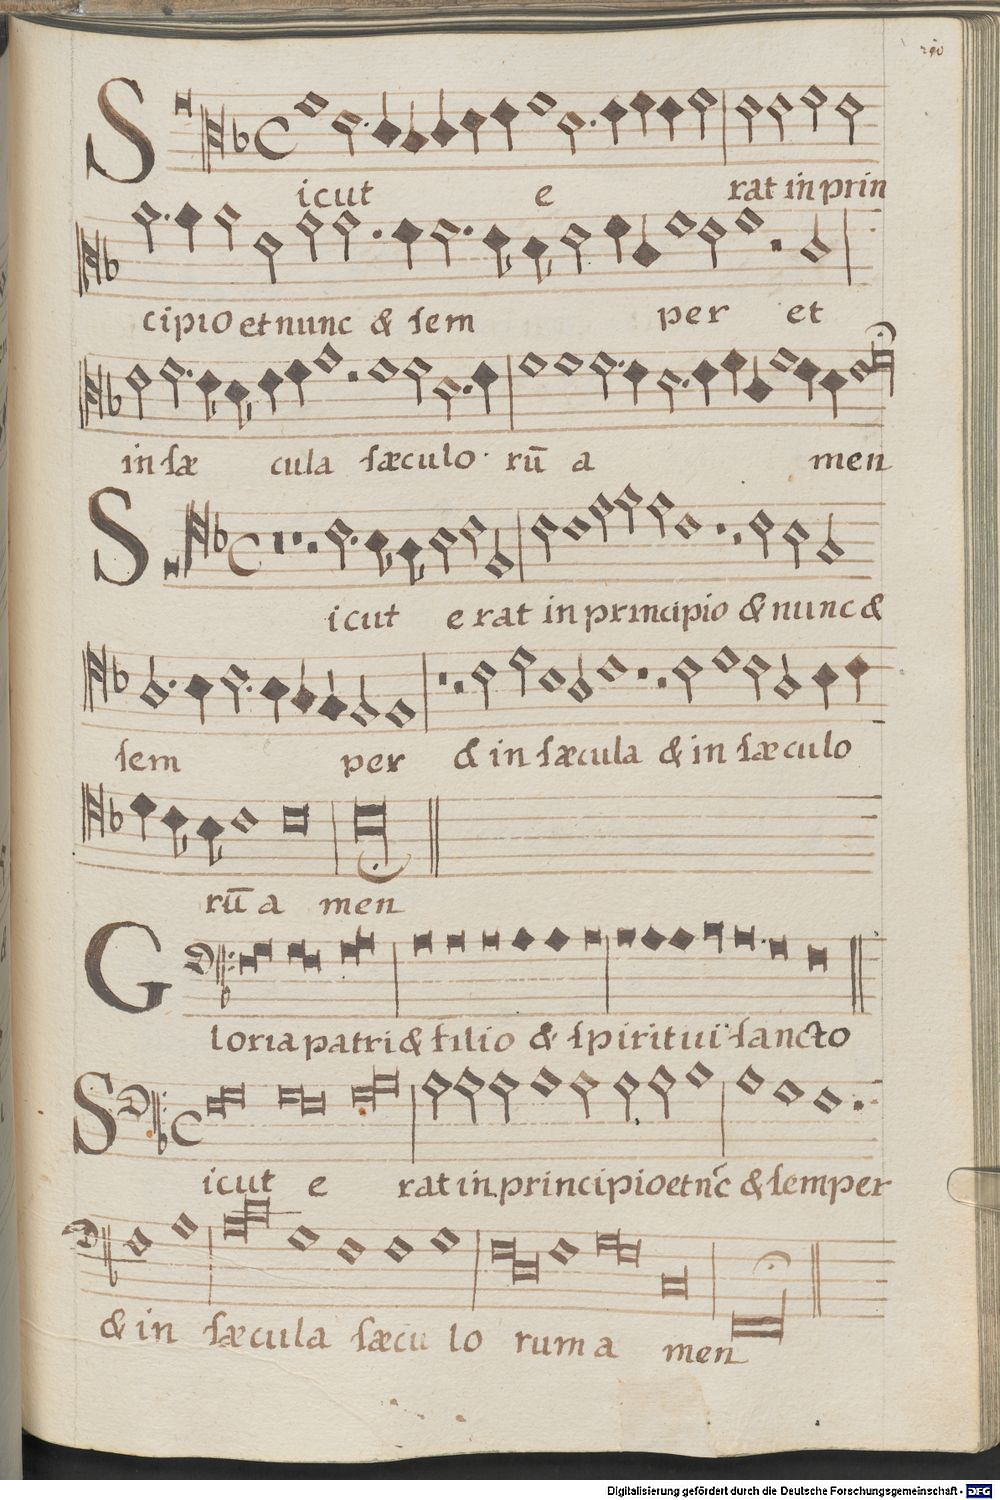 Sicut e rat in prin
cipio et nunc & sem per et
in sæ cula sæculo rū a men
Sicut e rat in principio & nunc &
sem per & in sæcula & in sæculo
rū a men
Gloria patri & filio & spiritui sancto
Sicut e rat in principio et nc̄ & semper
& in sæcula sæcu lo rum a men
Digitalisierung gefördert durch die Deutsche Forschungsgemeinschaft - DFG